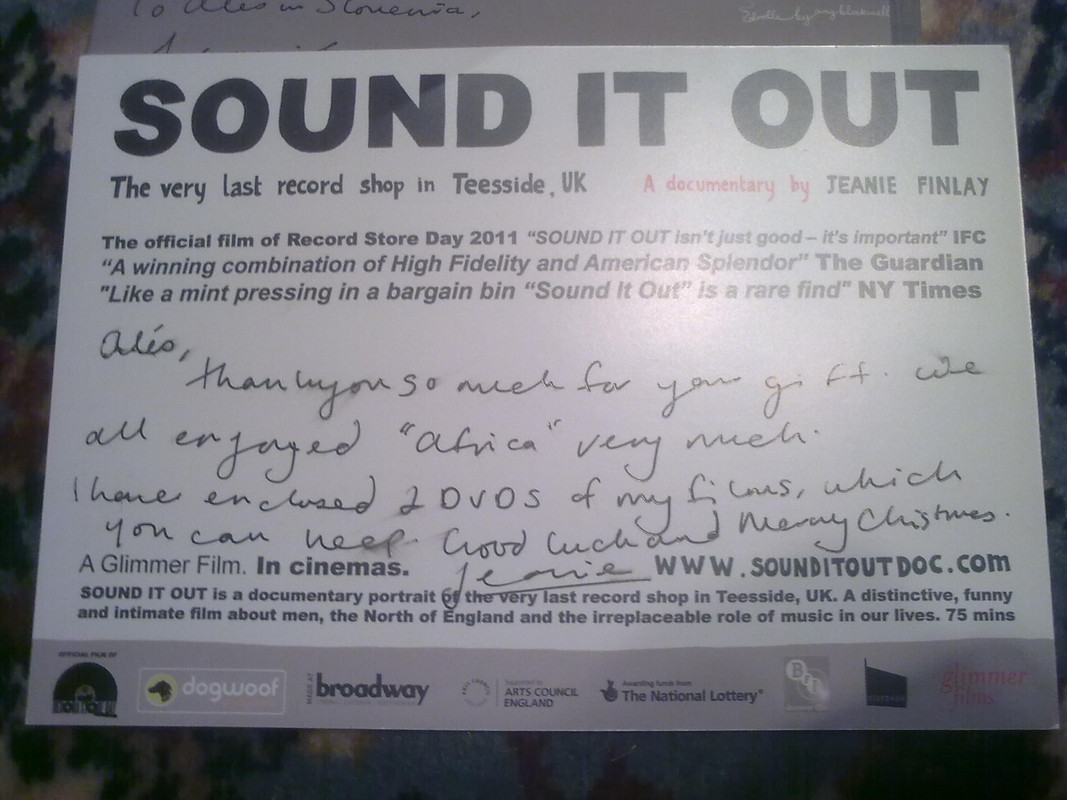 To Aleš in Slovenia,
SOUND IT OUT
The very last record shop in Teesside, UK A documentary by JEANIE FINLAY
The official film of Record Store Day 2011 "SOUND IT OUT isn't just good – it's important" IFC
"A winning combination of High Fidelity and American Splendor" The Guardian
"Like a mint pressing in a bargain bin "Sound It Out" is a rare find" NY Times
Aleš,
thankyou so much for your gift. We
all enjoyed "Africa" very much.
I have enclosed 2 DVDS of my films, which
you can keep. Good luck and Merry Christmas.
Jeanie
A Glimmer Film. In cinemas. WWW.SOUNDITOUTDOC.COM
SOUND IT OUT is a documentary portrait of the very last record shop in Teesside, UK. A distinctive, funny
and intimate film about men, the North of England and the irreplaceable role of music in our lives. 75 mins
OFFICIAL FILM OF
dogwoof
MADE AT broadway
Supported by
ARTS COUNCIL
ENGLAND
Awarding funds from
The National Lottery®
BFI
glimmer
films